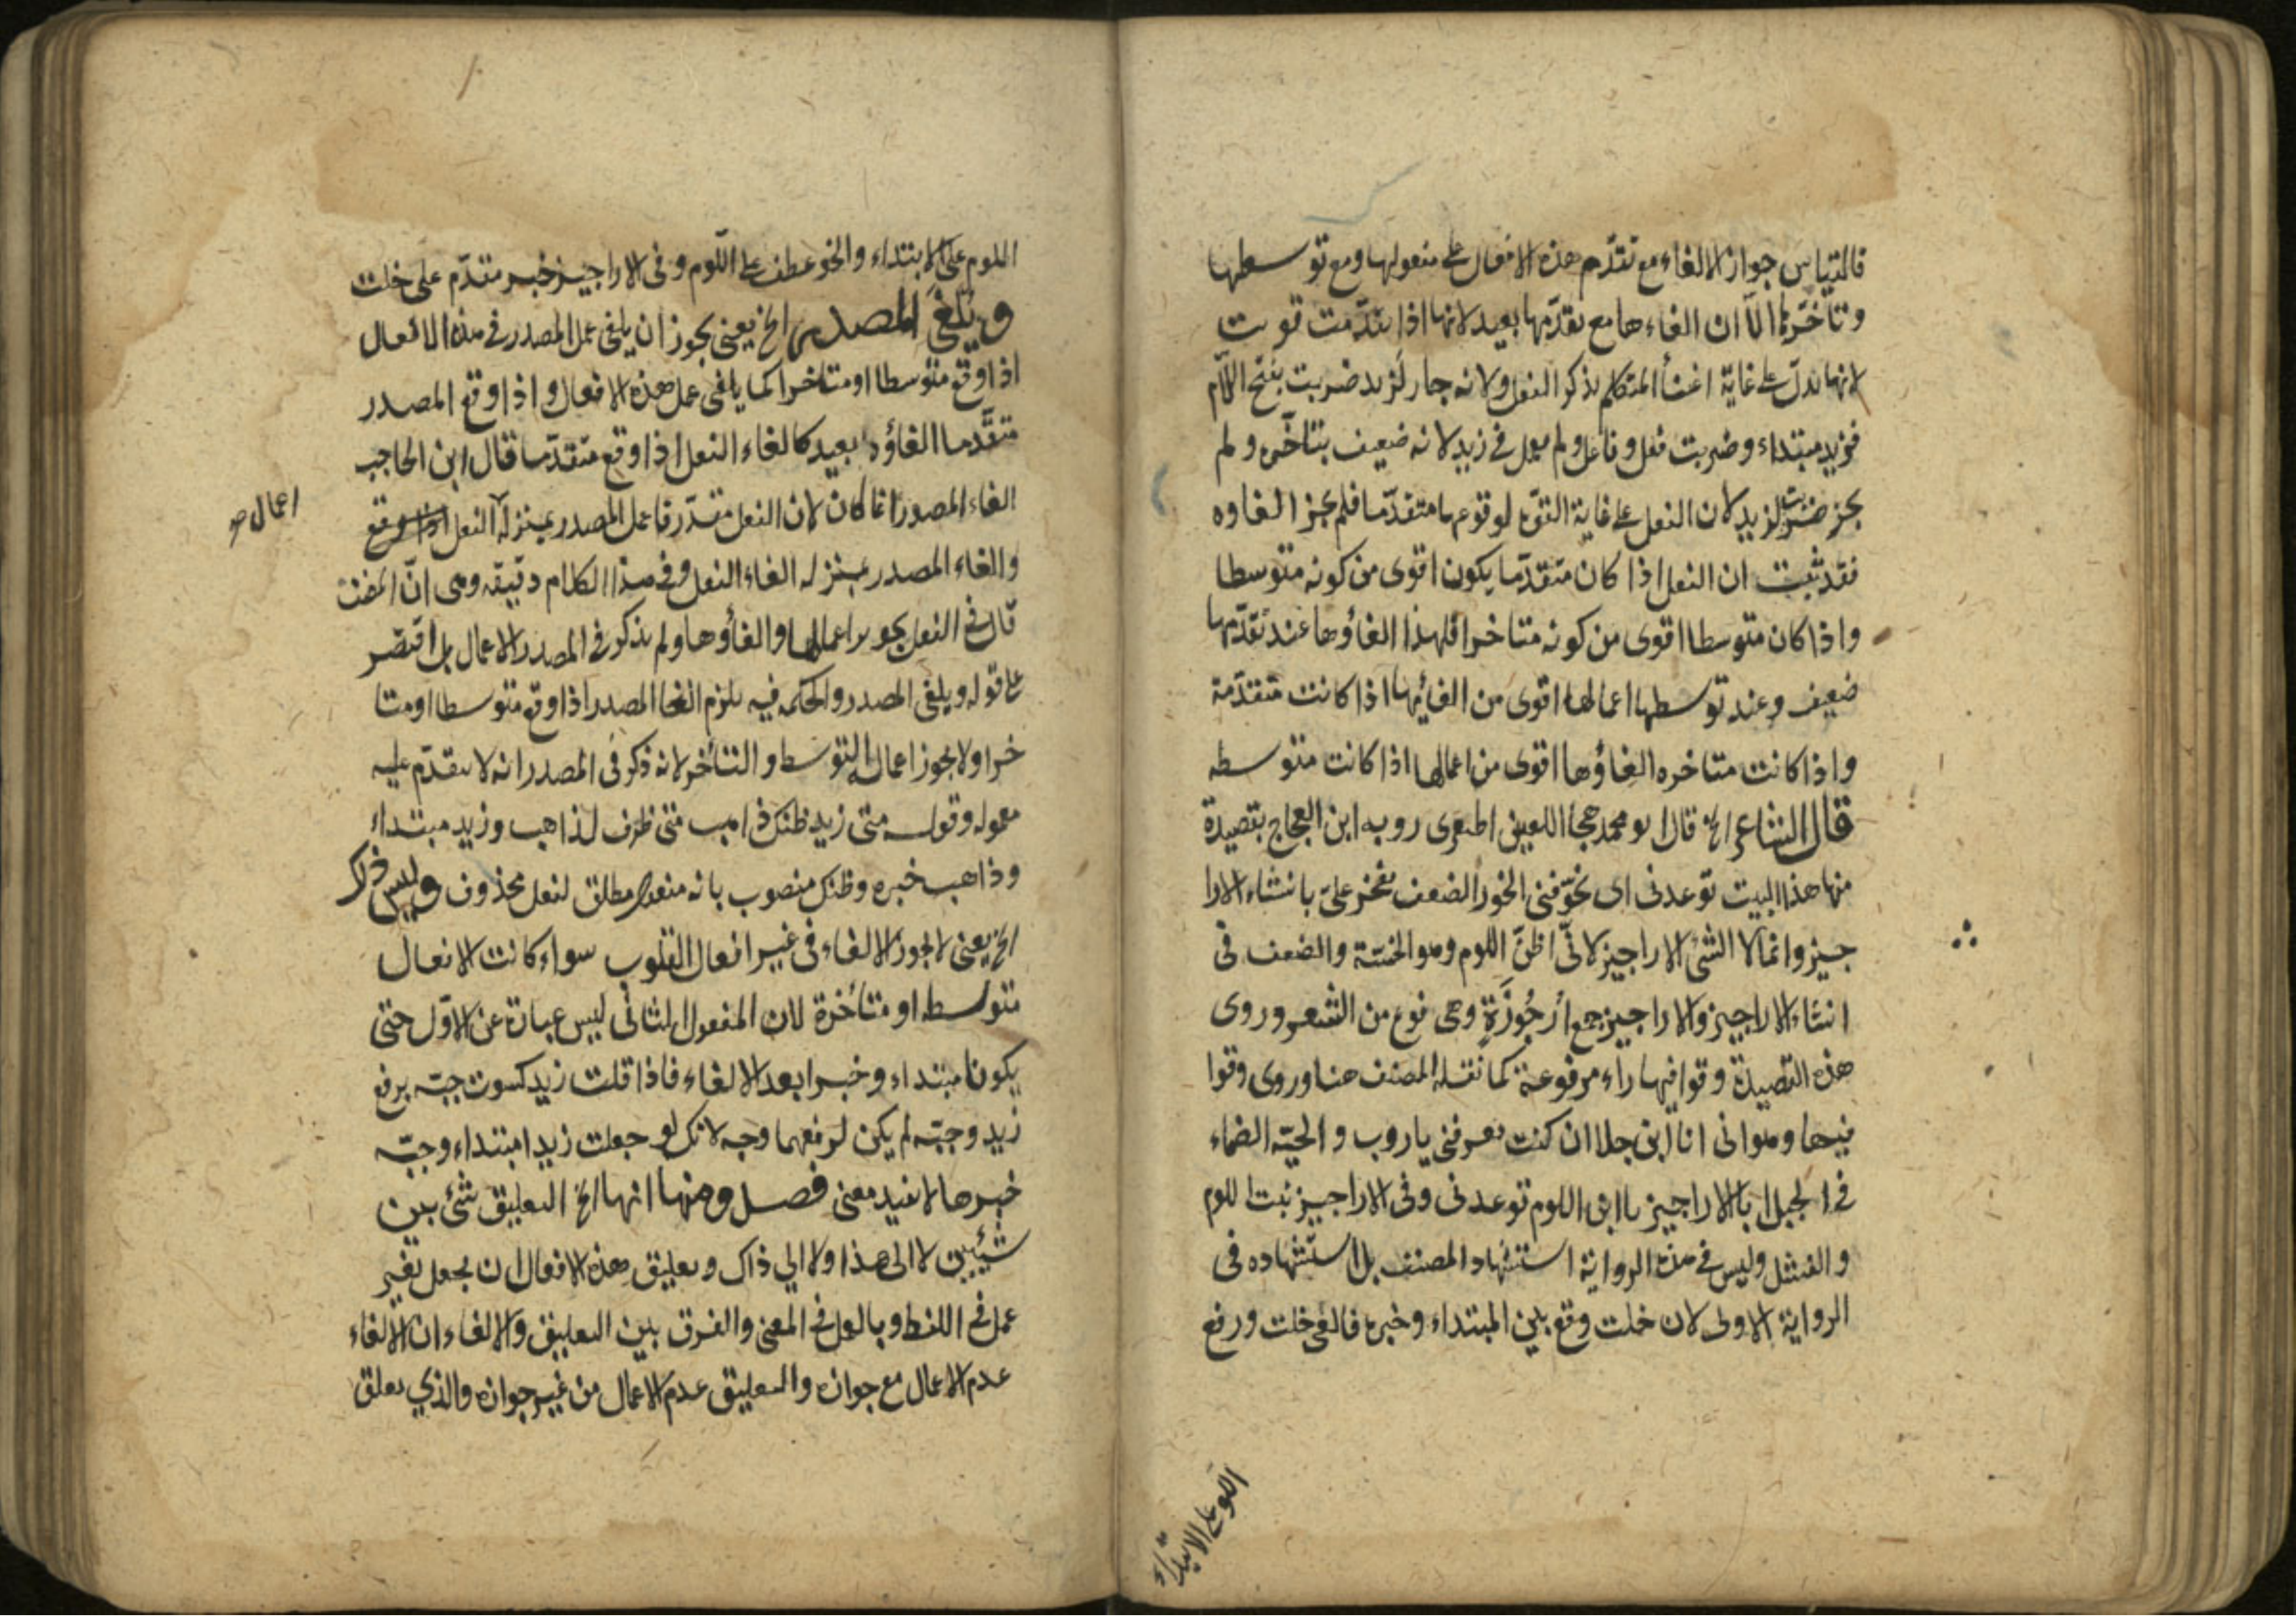 فالقياس جواز الالغاء مع تقدّم هذه الافعال على مفعولها ومع توسطها
وتاخّرها الاّ ان الغاءها مع تقدّمها بعيد لانها اذا تقدّمت قويت
لانها تدلّ على غاية اعتناء المتكلم بذكر الفعل ولانه جار لَزيد ضربت بفتح اللام
فزيد مبتداء وضربت فعل وفاعل ولم يعمل في زيد لانه ضعيف بتاخّره ولم
يجز ضربت لزيد لان الفعل على غاية القوة لوقوعها متقدّما فلم يجز الغاوه
فقد ثبت ان الفعل اذا كان متقدّما يكون اقوى من كونه متوسطا
واذا كان متوسطا اقوى من كونه متاخرا فلهذا الغاؤها عند تقدّمها
ضعيف وعند توسطها اعمالها اقوى من الغائها اذا كانت متقدّمة
واذا كانت متاخره الغاؤها اقوى من اعمالها اذا كانت متوسطه
قال الشاعر الخ قال ابو محمد هجا اللعين المنقرى روبه ابن العجاج بقصيدة
منها هذا البيت توعدنى اى تخوّفنى الخور الضعف تفخر علىّ بانشاء الارا
جيز وانما لا انشئ الاراجيز لانّى اظنّ اللوم وهو الخسّة والضعف فى
انشاء الاراجيز والاراجيز جمع اُرجُوزَةٍ وهى نوع من الشعر وروى
هذه القصيدة وقوافيها راء مرفوعة كما نقله المصنف هنا وروى وقوا
فيها وهو انى انا ابن جلا ان كنت تعرفنى ياروب والحيّة الصماء
فى الجبل ابا الاراجيز يا ابن اللوم توعدنى وفى الاراجيز بيت اللوم
والفشل وليس فى هذه الرواية استشهاد المصنف بل استشهاده فى
الرواية الاولى لان خلت وقع بين المبتداء وخبره فالغى خلت ورفع
اللوم على الابتداء
اللوم على الابتداء والخور عطف على اللّوم وفى الاراجيز خبر متقدّم على خلت
ويلغى المصدر الخ يعنى يجوز ان يلغى عمل المصدر فى هذه الافعال
اذا وقع متوسطا او متاخرا كما يلغى عمل هذه الافعال واذا وقع المصدر
متقدّما الغاؤه بعيد كالغاء الفعل اذا وقع متقدّما قال ابن الحاجب
الغاء المصدر انما كان لان الفعل مقدّر فاعمل المصدر بمنزلة الفعل اذا وقع
اعمال صح
والغاء المصدر بمنزله الغاء الفعل وفى هذا الكلام دقيقه وهى انّ المصنف
قال فى الفعل يجوز اعمالها والغاؤها ولم يذكر فى المصدر الاعمال بل اقتصر
على قوله ويلغى المصدر والحكم فيه يلزم الغاء المصدر اذا وقع متوسطا او متا
خرا ولا يجوز اعماله التوسط والتاخر لانه ذكر فى المصدر انه لا يتقدّم عليه
معموله وقوله متى زيد ظنك ذاهب متى ظرف لذاهب وزيد مبتداء
وذاهب خبره وظنك منصوب بانه مفعول مطلق لفعل محذوف وليس ذلك
الخ يعنى لا يجوز الالغاء فى غير افعال القلوب سواء كانت الافعال
متوسطه او متأخرة لان المفعول الثانى ليس عبارة عن الاوّل حتى
يكونا مبتداء وخبرا بعد الالغاء فاذا قلت زيد كسوت جبّه برفع
زيد وجبّه لم يكن لرفعهما وجه لانك لو جعلت زيدا مبتداء وجبّه
خبرها لا يفيد معنى فصل ومنها انها الخ التعليق شئ بين
شيئين لا الى هذا ولا الى ذاك وتعليق هذه الافعال ان يجعل بغير
عمل فى اللفظ وبالعمل فى المعنى والفرق بين التعليق والالغاء ان الالغاء
عدم الاعمال مع جوازه والتعليق عدم الاعمال من غير جوازه والذي يعلق